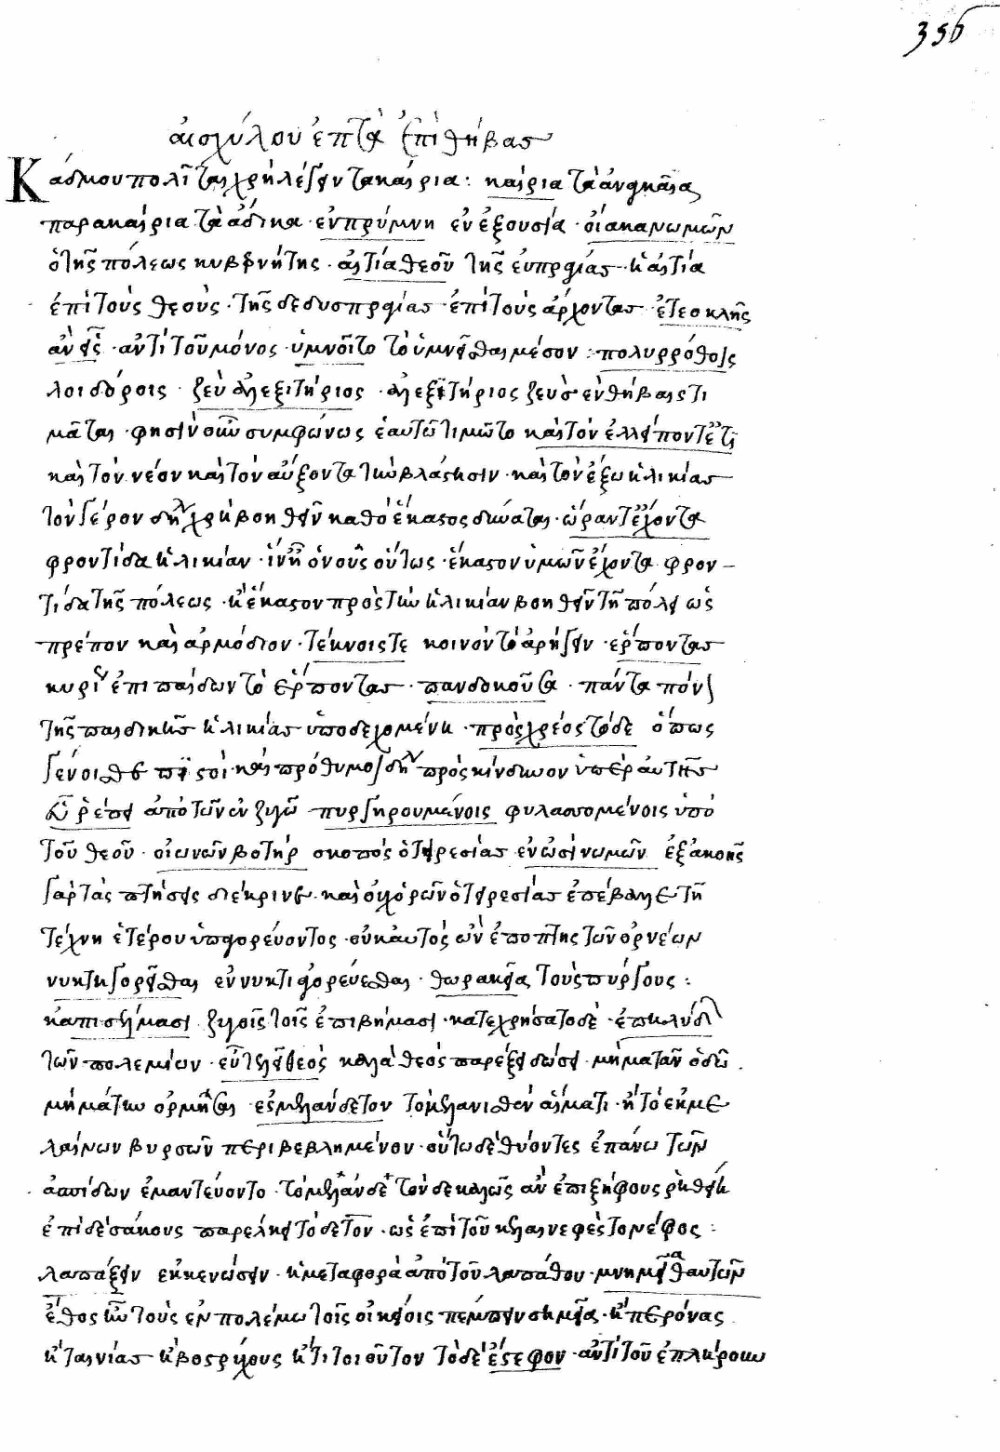 356
αἰσχύλου ἑπτὰ ἐπὶ θήβας
Κάδμου πολῖται χρὴ λέγειν τὰ καίρια: καίρια τὰ ἀναγκαῖα
παρακαίρια τὰ ἄδικα · ἐν πρύμνῃ ἐν ἐξουσίᾳ · οἴακα νωμῶν
ὁ τῆς πόλεως κυβερνήτης · αἰτία θεοῦ τῆς εὐπραγίας · ἡ αἰτία
ἐπὶ τοὺς θεούς · τῆς δὲ δυσπραγίας · ἐπὶ τοὺς ἄρχοντας · ἐτεοκλῆς
ἂν εἷς · ἀντὶ τοῦ μόνος · ὑμνοῖτο τὸ ὑμνεῖσθαι μέσον : πολυρρόθοις
λοιδόροις · ζεὺς ἀλεξιτήριος · ἀλεξιτήριος ζεὺς ἐν θήβαις τι
μᾶται · φησὶν οὖν συμφώνως ἑαυτῶ τιμῶτο καὶ τὸν ἐλλείποντ' ἔτι
καὶ τὸν νέον καὶ τὸν αὔξοντα τὴν βλάστησιν · καὶ τὸν ἔξω ἡλικίας
τὸν γέροντα δηλ χρὴ βοηθεῖν καθὸ ἕκαστος δύναται · ὥραν τ' ἔχοντα
φροντίδα ἡλικίαν · ἵν' ᾖ ὁ νοῦς οὕτως · ἕκαστον ὑμῶν ἔχοντα φρον-
τίδα τῆς πόλεως · καὶ ἕκαστον πρὸς τὴν ἡλικίαν βοηθεῖν τῇ πόλει ὡς
πρέπον καὶ ἁρμόδιον · τέκνοις τε κοινὸν τὸ ἀρήγειν · ἕρποντας
κυρίως ἐπὶ παίδων τὸ ἕρποντας · πανδοκοῦσα · πάντα πόνον
τῆς παιδικῆς ἡλικίας ὑποδεχομένη · πρὸς χρέος τόδε ὅπως
γένοισθε πιστοὶ καὶ πρόθυμοι δηλ πρὸς κίνδυνον ὑπὲρ αὐτῆς
εὖ ῥέπει ἀπὸ τῶν ἐν ζυγῶ πυργηρουμένοις φυλασσομένοις ὑπὸ
τοῦ θεοῦ · οἰωνῶν βοτὴρ σκοπὸς ὁ τειρεσίας ἐν ὠσὶ νωμῶν ἐξ ἀκοῆς
γὰρ τὰς πτήσεις διέκρινε · καὶ οὐχ ὁρῶν ὁ τειρεσίας ἐπέβαλλε τῇ
τέχνη ἑτέρου ὑπαγορεύοντος · οὐκ αὐτὸς ὢν ἐπόπτης τῶν ὀρνέων
νυκτηγορεῖσθαι ἐν νυκτὶ ἀγορεύεσθαι · θωρακεῖα τοὺς πύργους :
κἀπὶ σέλμασι ζυγοῖς τοῖς ἐπιβήμασι · κατεχρήσατο δὲ · ἐπηλύδων
τῶν πολεμίων · εὖ τελεῖ θεός καλὰ θεὸς παρέξει δώσει ·
μήματην ὁρμῆσαι · ἐς μελάνδετον τὸ μελανθὲν αἵματι · ἢ τὸ ἐκ με
λαίνων βυρσῶν περιβεβλημένον · οὕτω δὲ θύοντες ἐπάνω τῶν
ἀσπίδων ἐμαντεύοντο · τὸ μελάνδετον δὲ καλῶς ἂν ἐπὶ ξίφους ῥηθείη
ἐπὶ δὲ σάκους παρέλκει τὸ δετον · ὡς ἐπὶ τοῦ κελαινεφὲς τὸ νέφος :
λαπάξειν ἐκκενώσειν · ἡ μεταφορὰ ἀπὸ τοῦ λαπάθου · μνημεῖα θ' αὑτῶν
ἔθος ἦν τοὺς ἐν πολέμω τοῖς οἰκείοις πέμπειν σημεῖα · ἢ περόνας
ἢ ταινίας ἢ βοστρύχους ἤ τι τοιοῦτον τὸ δὲ ἔστεφον · ἀντὶ τοῦ ἐπλήρουν